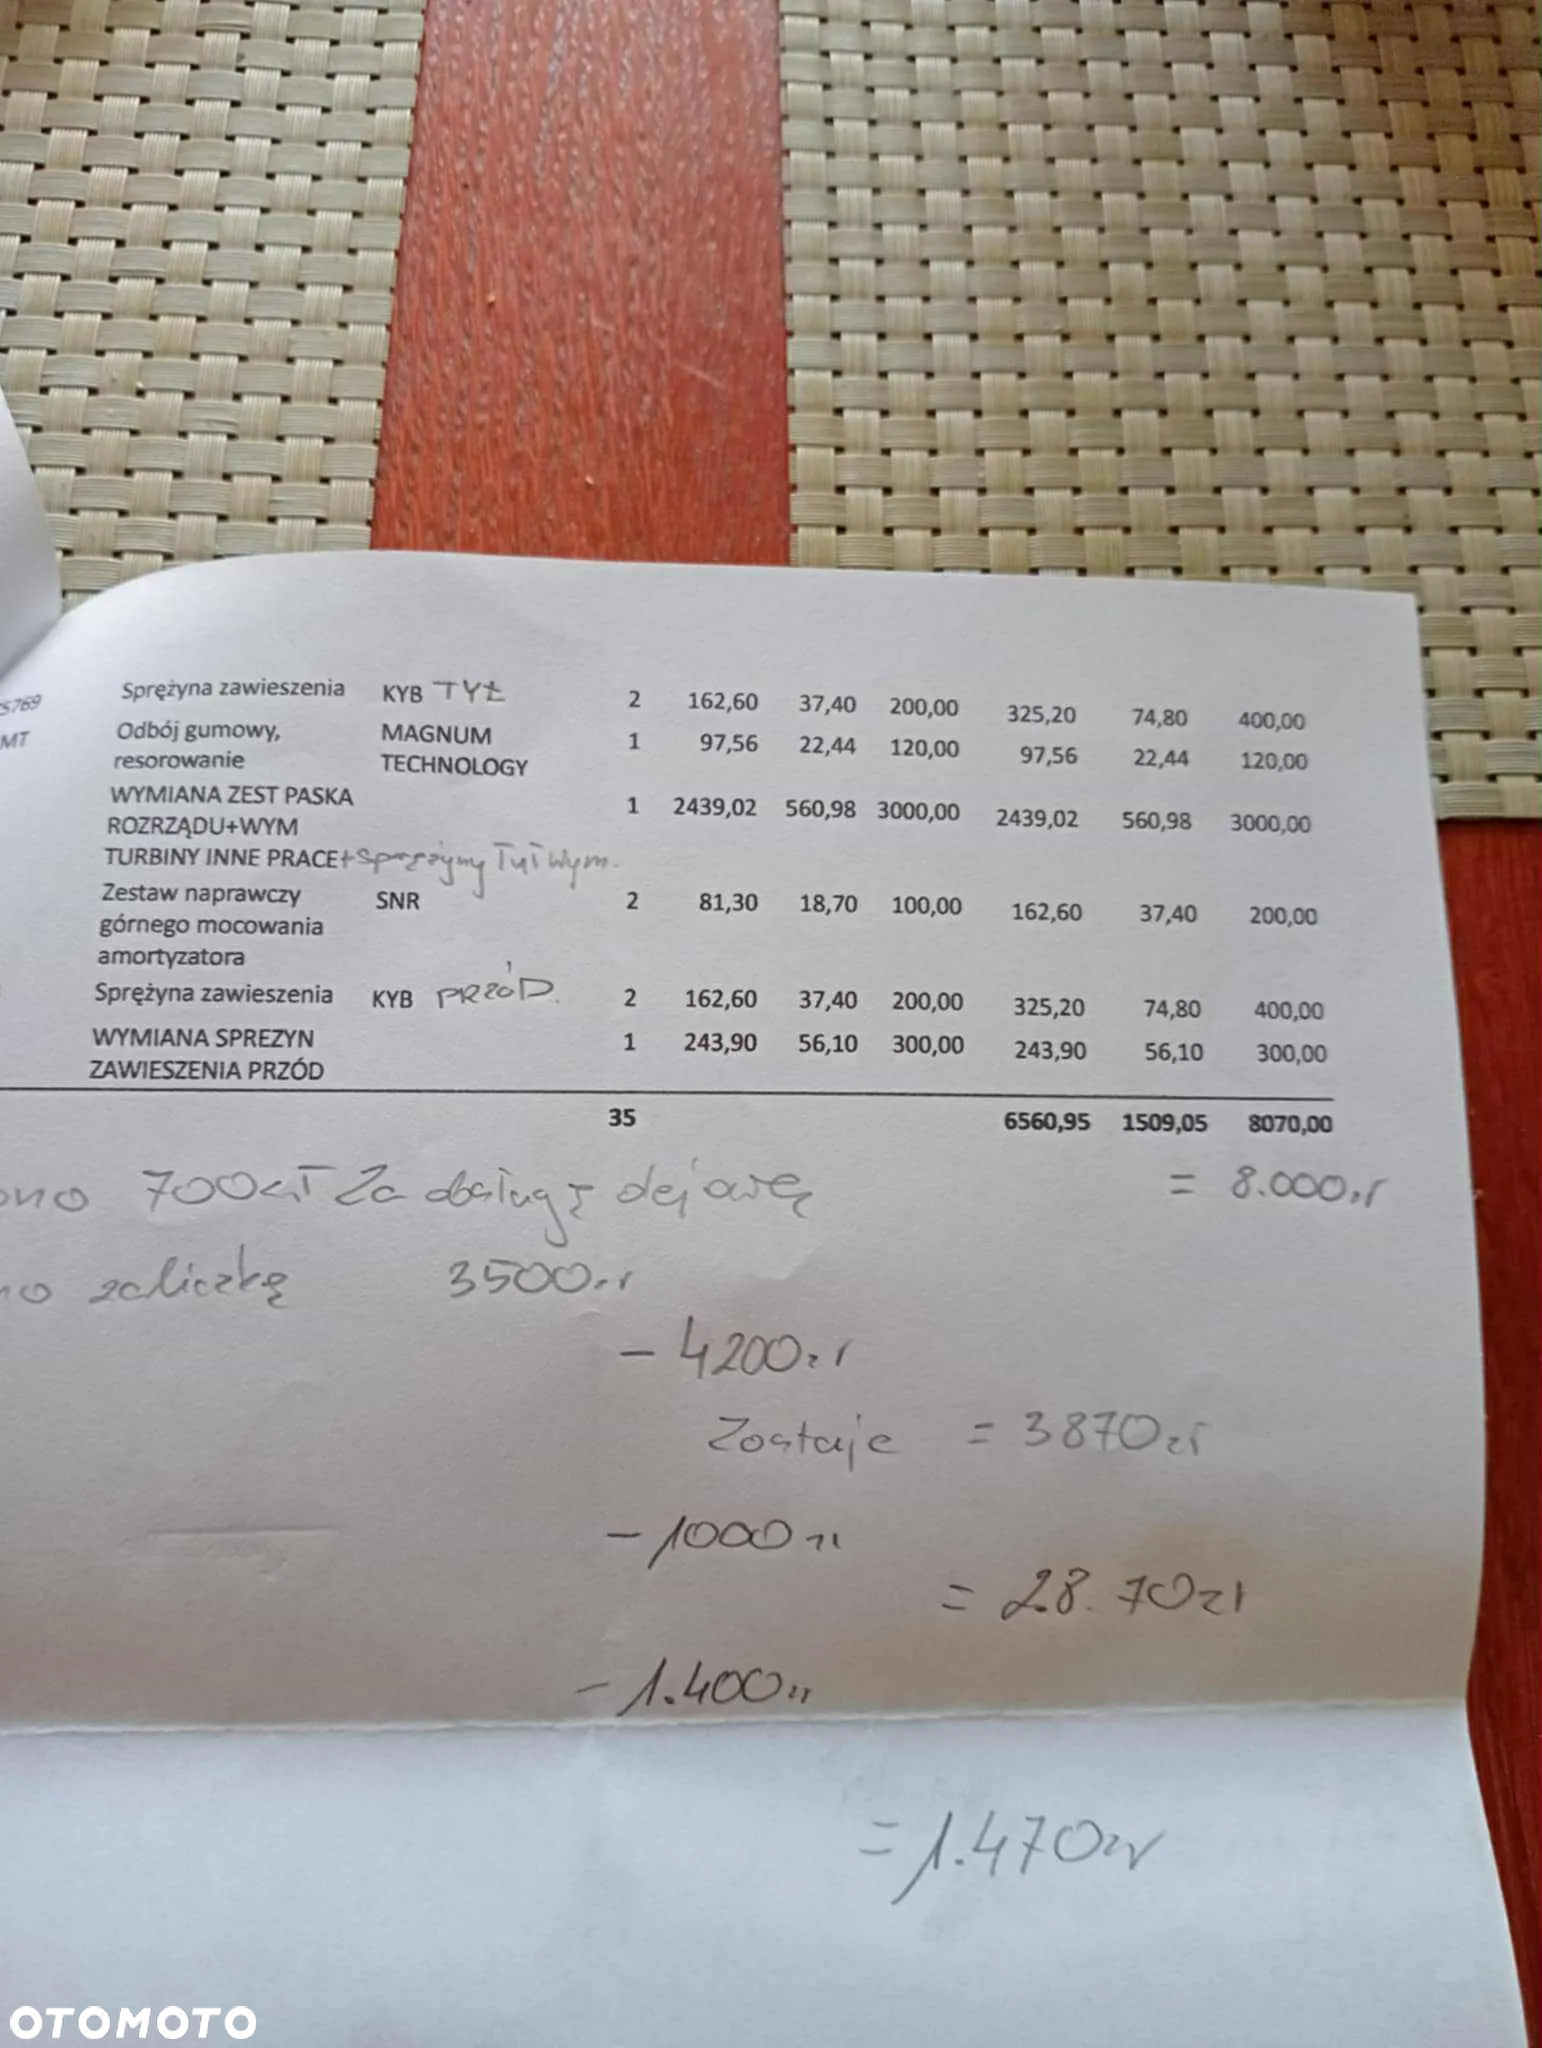 Sprężyna zawieszenia KYB TYŁ 2 162,60 37,40 200,00 325,20 74,80 400,00
S769
Odbój gumowy, MAGNUM 1 97,56 22,44 120,00 97,56 22,44 120,00
MT
resorowanie TECHNOLOGY
WYMIANA ZEST PASKA 1 2439,02 560,98 3000,00 2439,02 560,98 3000,00
ROZRZĄDU+WYM
TURBINY INNE PRACE+sprężyny tył wym.
Zestaw naprawczy SNR 2 81,30 18,70 100,00 162,60 37,40 200,00
górnego mocowania
amortyzatora
Sprężyna zawieszenia KYB PRZÓD. 2 162,60 37,40 200,00 325,20 74,80 400,00
WYMIANA SPREZYN 1 243,90 56,10 300,00 243,90 56,10 300,00
ZAWIESZENIA PRZÓD
35 6560,95 1509,05 8070,00
ono 700zł za obsługę olejową = 8.000zł
no zaliczkę 3500zł
- 4200zł
Zostaje = 3870zł
- 1000zł
= 28.70zł
- 1.400zł
= 1.470zł
OTOMOTO